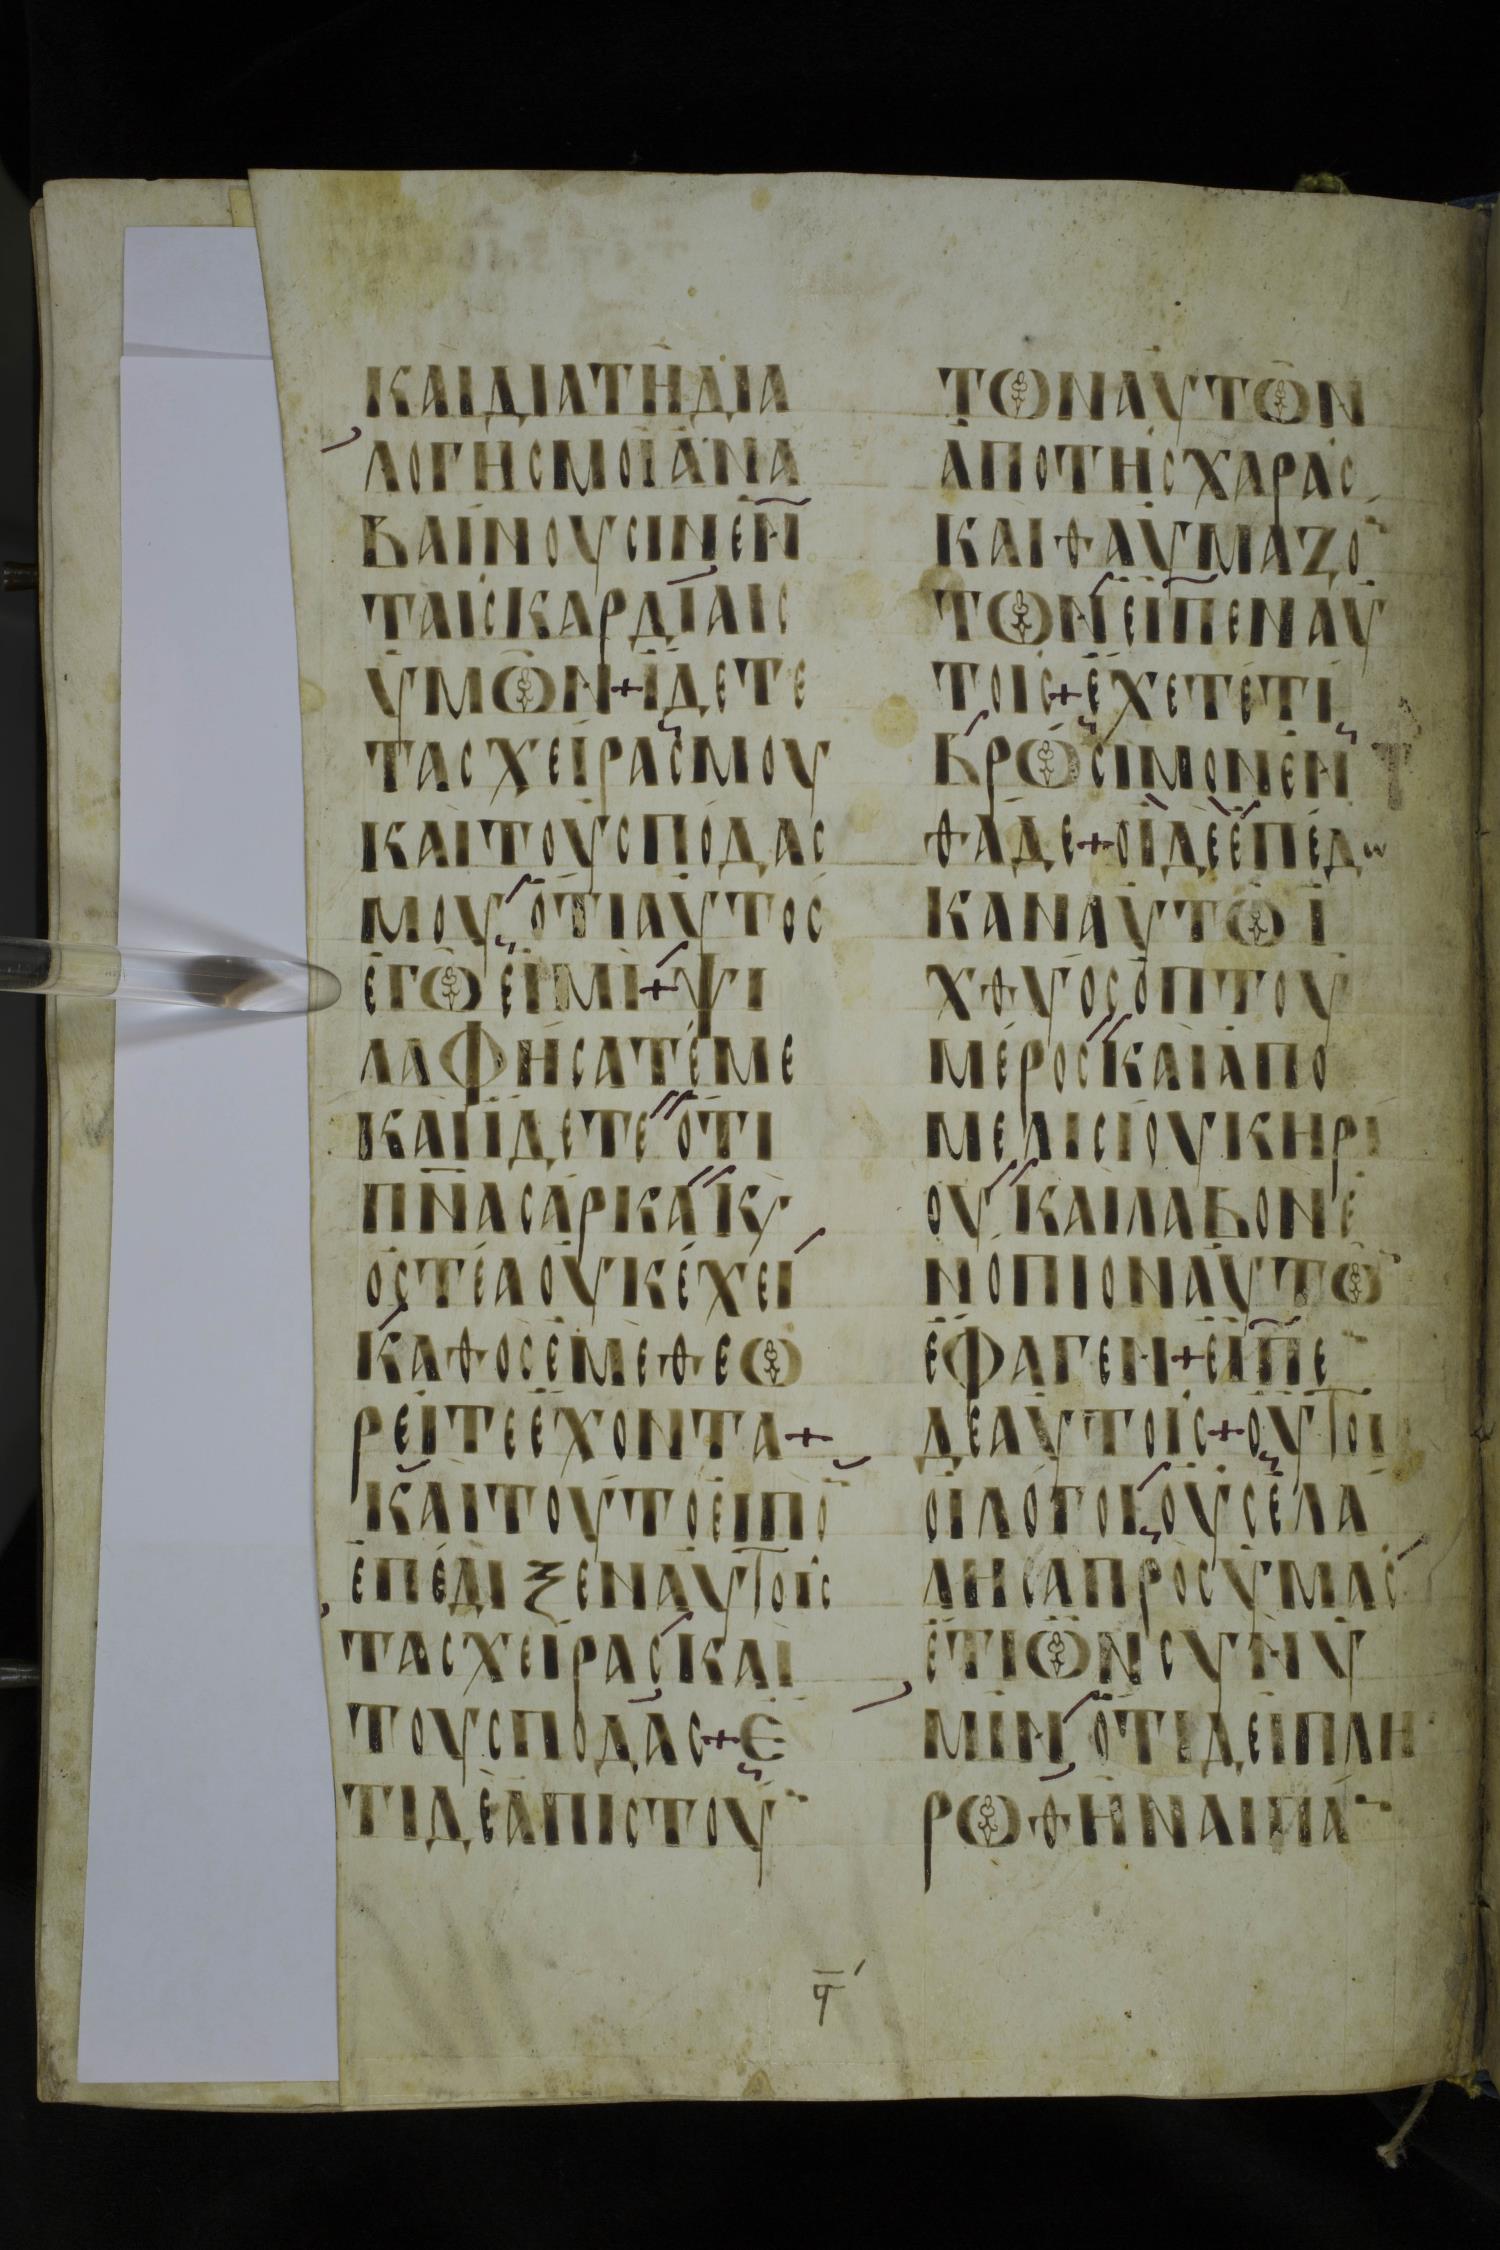 ΚΑΙΔΙΑΤΗΔΙΑ
ΛΟΓΗСΜΟΙΑΝΑ
ΒΑΙΝΟΥСΙΝΕΝ
ΤΑΙСΚΑΡΔΙΑΙС
ΥΜΩΝ+ΙΔΕΤΕ
ΤΑСΧΕΙΡΑСΜΟΥ
ΚΑΙΤΟΥСΠΟΔΑС
ΜΟΥΟΤΙΑΥΤΟС
ΕΓΩΕΙΜΙ+ΨΙ
ΛΑΦΗСΑΤΕΜΕ
ΚΑΙΙΔΕΤΕΟΤΙ
ΠΝ̅ΑСΑΡΚΑΚΣ
ΟСΤΕΑΟΥΚΕΧΕΙ
ΚΑΘΟСΕΜΕΘΕΩ
ΡΕΙΤΕΕΧΟΝΤΑ+
ΚΑΙΤΟΥΤΟΕΙΠΟ
ΕΠΕΔΙΞΕΝΑΥΤΟΙС
ΤΑСΧΕΙΡΑСΚΑΙ
ΤΟΥСΠΟΔΑС+Ε
ΤΙΔΕΑΠΙСΤΟΥ
ΤΩΝΑΥΤΩΝ
ΑΠΟΤΗСΧΑΡΑС
ΚΑΙΘΑΥΜΑΖΟ
ΤΩΝΕΙΠΕΝΑΥ
ΤΟΙС+ΕΧΕΤΕΤΙ
ΒΡΩСΙΜΟΝΕΝ
ΘΑΔΕ+ΟΙΔΕΕΠΕΔω
ΚΑΝΑΥΤΩΙ
ΧΘΥΟСΟΠΤΟΥ
ΜΕΡΟСΚΑΙΑΠΟ
ΜΕΛΙСΙΟΥΚΗΡΙ
ΟΥΚΑΙΛΑΒΟΝΕ
ΝΟΠΙΟΝΑΥΤΩ
ΕΦΑΓΕΝ+ΕΙΠΕ
ΔΕΑΥΤΟΙС+ΟΥΤΟΙ
ΟΙΛΟΓΟΙΟΥСΕΛΑ
ΛΗСΑΠΡΟСΥΜΑС
ΕΤΙΩΝСΥΝΥ
ΜΙΝΟΤΙΔΕΙΠΛΗ
ΡΩΘΗΝΑΙΠΑ